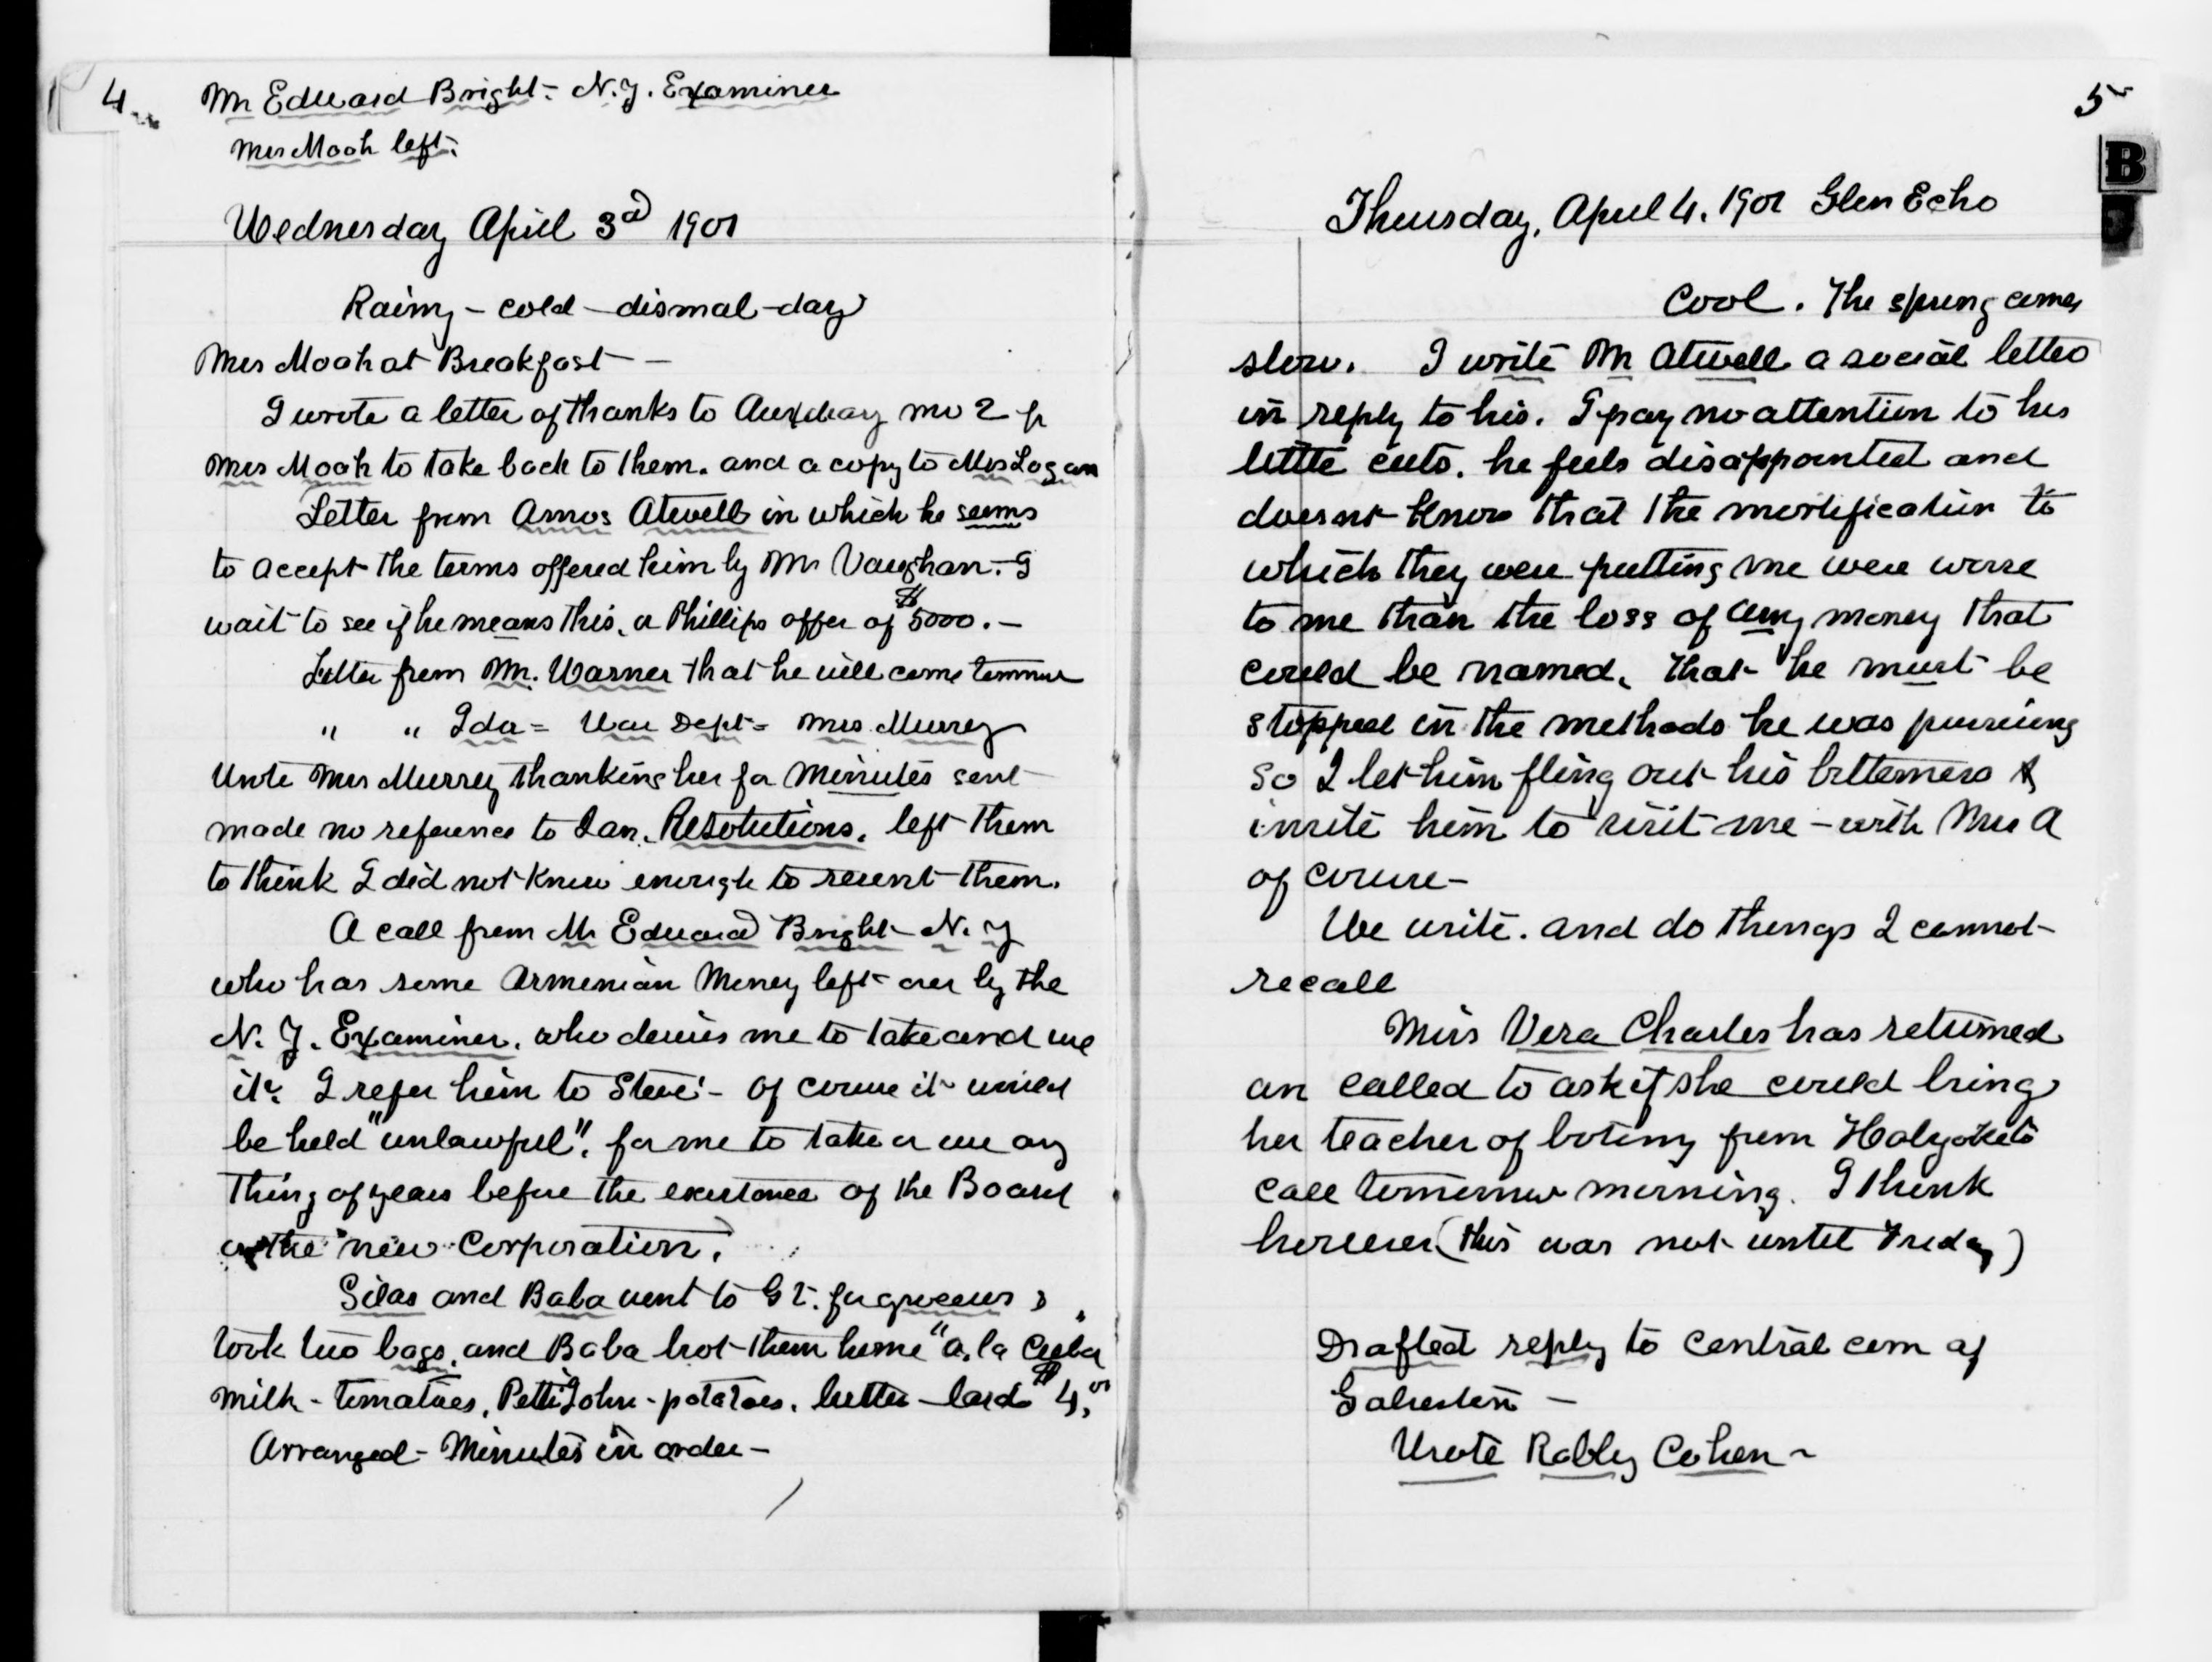 4
Mr Edward Bright - N.Y. Examiner
Mrs Moah left.
Wednesday April 3d 1901
Rainy - cold - dismal - day
Mrs Moah at Breakfast -
I wrote a letter of thanks to Auxiliary no 2 for
Mrs Moah to take back to them. and a copy to Mrs Logan
Letter from Amos Atwell in which he seems
to accept the terms offered him by Mr Vaughan. I
wait to see if he means this, or Phillips offer of $5000. -
Letter from Mr. Warner that he will come tomorrow
" " Ida = War Dept = Mrs Murrey
Wrote Mrs Murrey thanking her for Minutes sent
made no reference to Jan. Resolutions. left them
to think I did not know enough to resent them.
A call from Mr Edward Bright - N. Y
who has some Armenian Money left over by the
N. Y. Examiner. who desires me to take and use
it. I refer him to Steve - Of course it would
be held "unlawful", for me to take or use any
thing of years before the existence of the Board
or the new Corporation.
Silas and Baba went to G E. for groceries &
took two bags, and Baba brot them home "a. la Cuba"
Milk - tomatoes, PettiJohn - potatoes. butter - lard $4.00
Arranged - Minutes in order -
5
B
Thursday, April 4. 1901 Glen Echo
Cool. The spring comes
slow. I write Mr Atwell a social letter
in reply to his. I pay no attention to his
little cuts. he feels disappointed and
doesnt know that the mortification to
which they were putting me were worse
to me than the loss of any money that
could be named, that he must be
stopped in the methods he was pursuing
so I let him fling out his bitterness &
invite him to visit me - with Mrs A
of course -
We write. and do things I cannot
recall
Miss Vera Charles has returned
an called to ask if she could bring
her teacher of botany from Holyoke to
call tomorrow morning. I think
however (this was not until Friday)
Drafted reply to Central com of
Galveston -
Wrote Rabby Cohen -